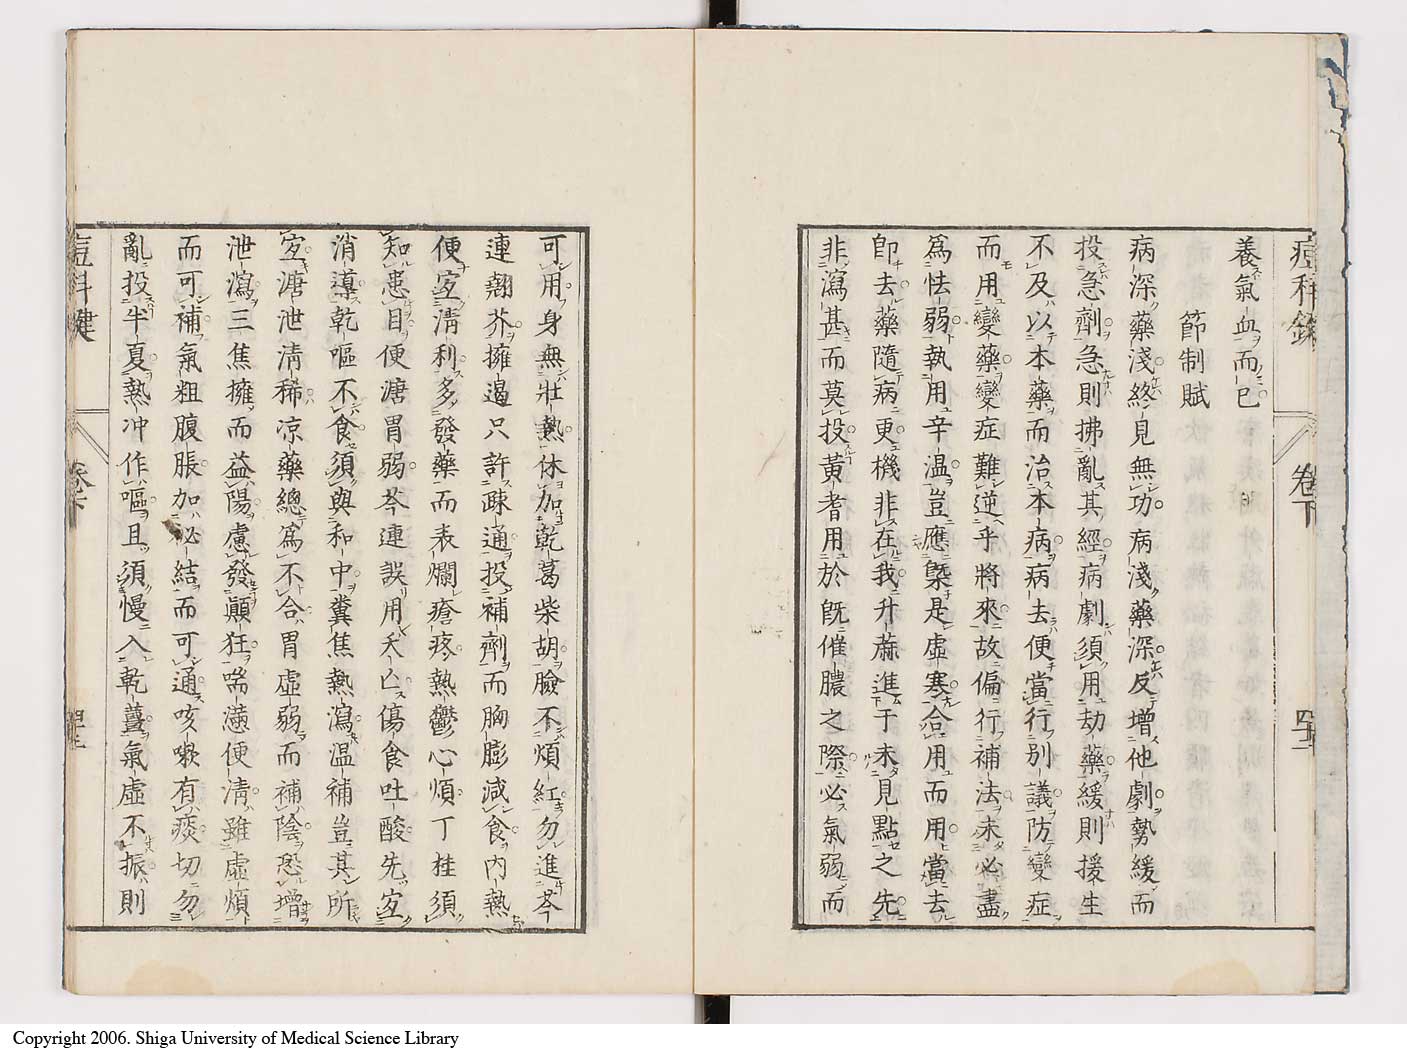 痘科鍵 卷下 四十二
養氣血而已
節制賦
病深藥淺終見無功病淺藥深反增他劇勢緩而
投急劑急則拂亂其經病劇須用劫藥緩則援生
不及以本藥而治本病病去便當行別議防變症
而用變藥變症難逆乎將來故偏行補法未必盡
爲怯弱執用辛溫豈應槩是虛寒合用而用當去
卽去藥隨病更機非在我升蔴進于未見點之先
非瀉甚而莫投黃耆用於旣催膿之際必氣弱而
可用身無壯熱休加乾葛柴胡臉不煩紅勿進芩
連翹芥擁遏只許疎通投補劑而胸膨減食內熱
便宻淸利多發藥而表爛瘡疼熱鬱心煩丁桂須
知患目便溏胃弱芩連誤用夭亾傷食吐酸先宻
消導乾嘔不食須與和中糞焦熱瀉温補豈其所
宻溏泄淸稀凉藥總爲不合胃虛弱而補陰恐增
泄瀉三焦擁而益陽慮發顚狂喘懣便淸雖虛煩
而可補氣粗腹脹加必結而可通咳嗽有痰切勿
亂投半夏熱冲作嘔且須慢入乾薑氣虛不振則
痘科鍵 卷下
Copyright 2006. Shiga University of Medical Science Library